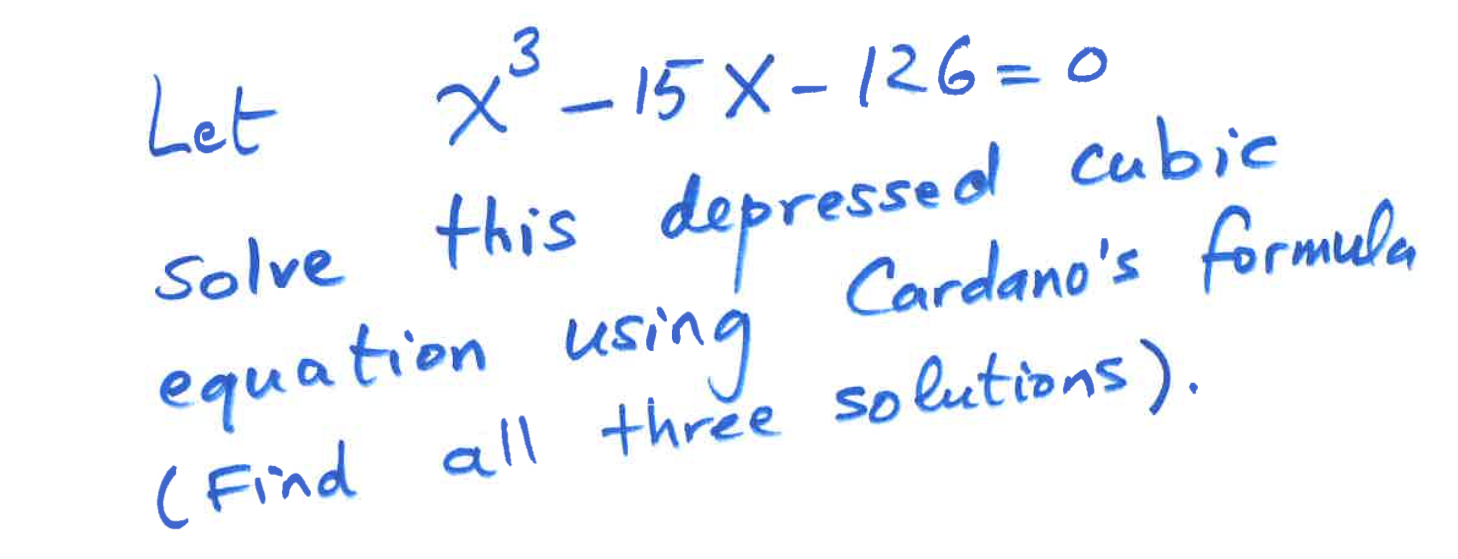 Let x³ - 15x - 126 = 0
solve this depressed cubic
equation using Cardano's formula
(Find all three solutions).